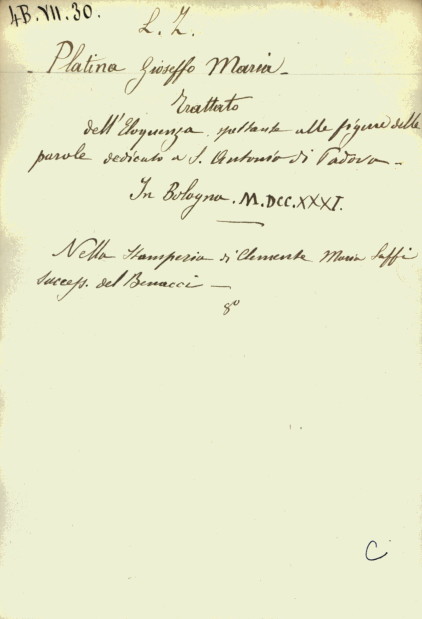 4B.VII.30.
L. Z.
Platina Gioseffo Maria
Trattato
dell'Eloquenza spettante alle figure delle
parole dedicato a S. Antonio di Padova
In Bologna. M.DCC.XXXI.
Nella Stamperia di Clemente Maria Saffi
Success. del Benacci
8º
C